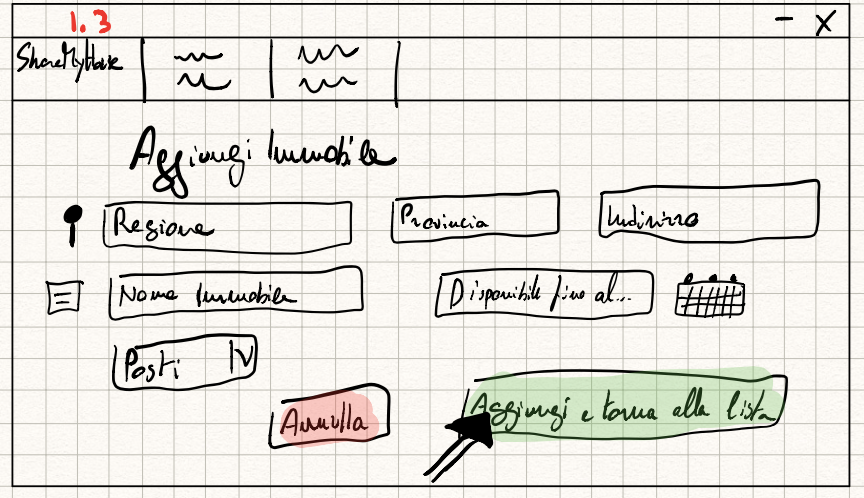 1.3
- X
ShareMyHouse
Aggiungi Immobile
Regione
Provincia
Indirizzo
Nome Immobile
Disponibile fino al...
Posti
Annulla
Aggiungi e torna alla lista